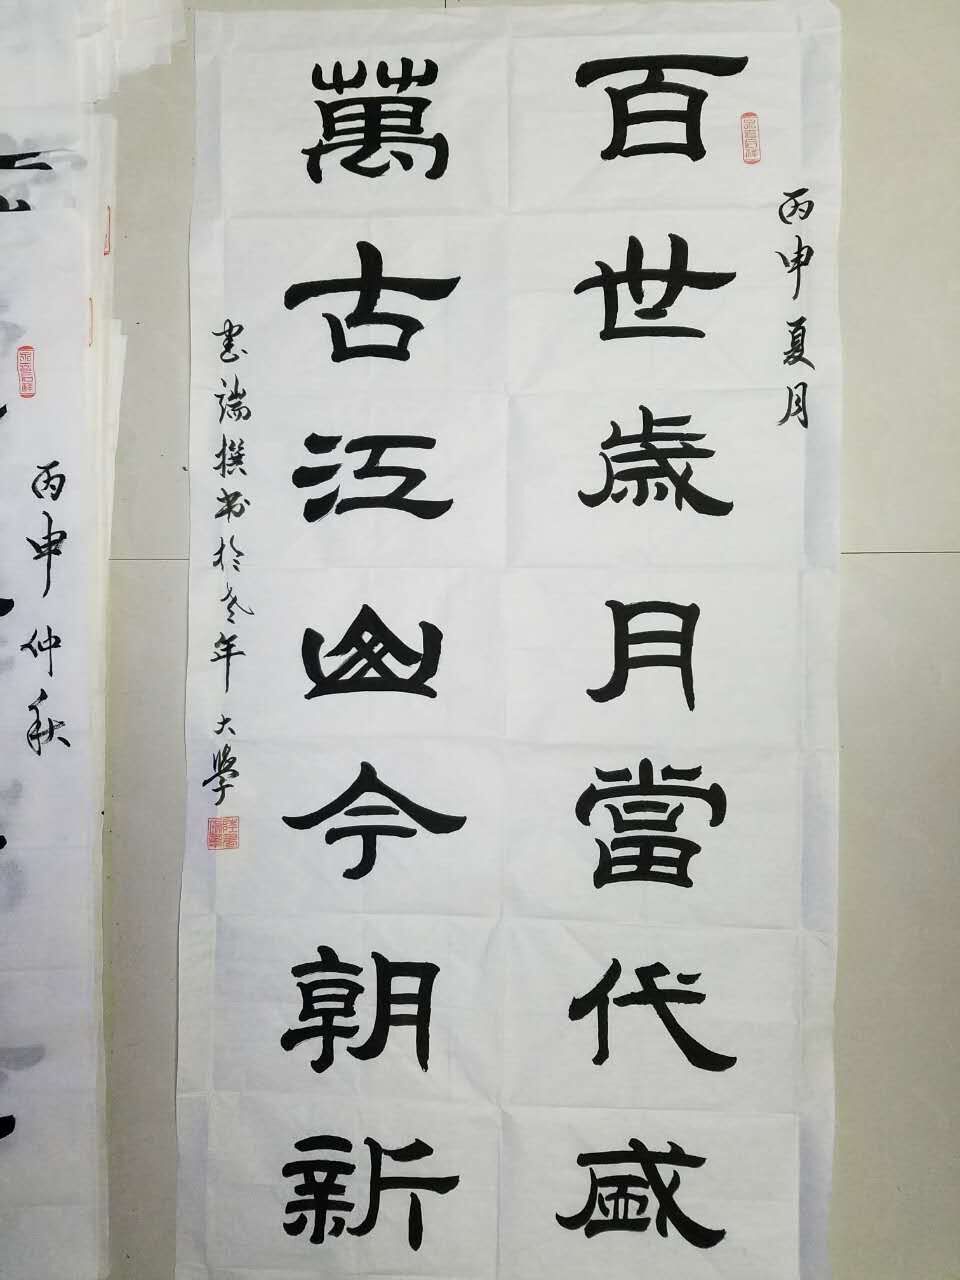 丙申夏月
百世歳月當代盛
萬古江山今朝新
書端撰书於老年大學
丙申仲秋